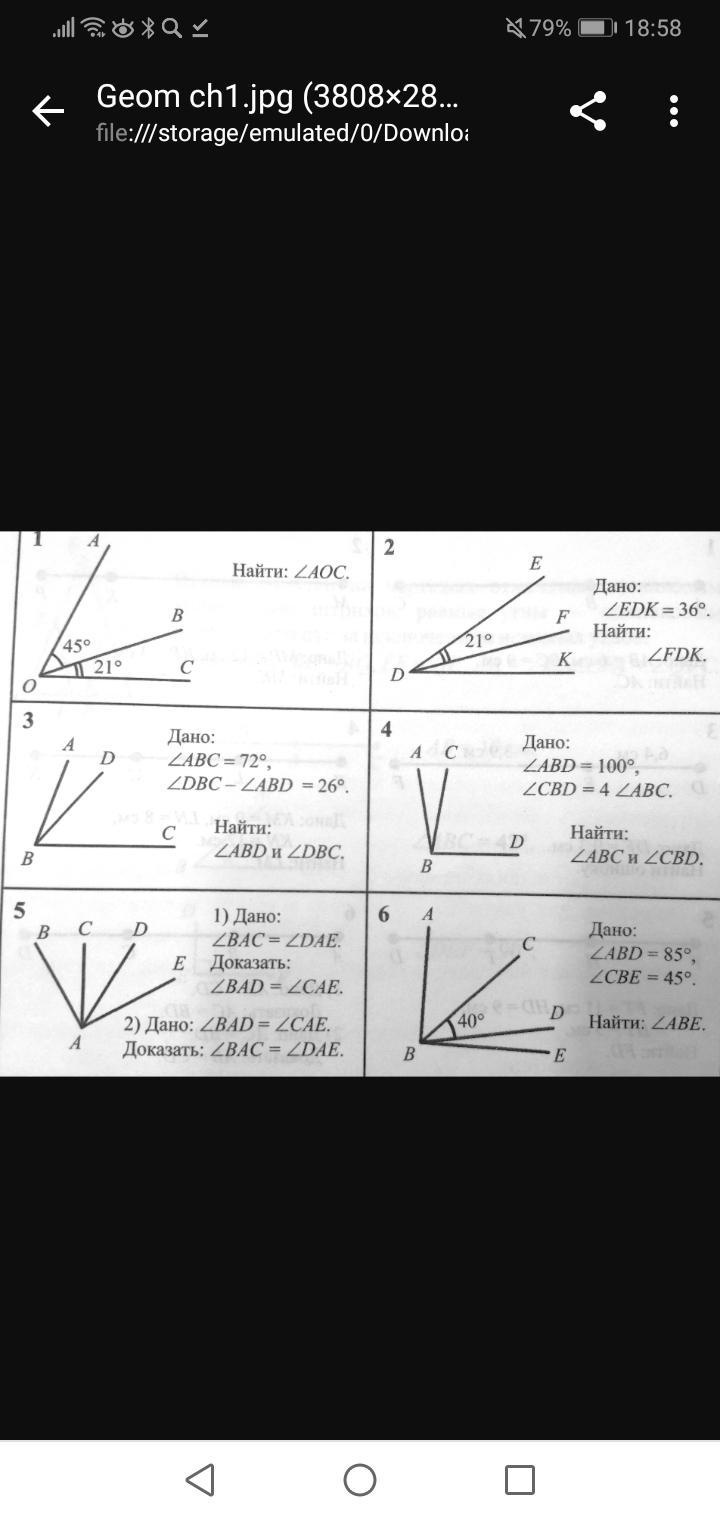 79% 18:58
Geom ch1.jpg (3808×28...
file:///storage/emulated/0/Downloa
1
A
Найти: ∠AOC.
B
45°
21°
C
O
2
E
Дано:
∠EDK = 36°.
F
Найти:
21°
K
∠FDK.
D
3
A
D
Дано:
∠ABC = 72°,
∠DBC – ∠ABD = 26°.
C
Найти:
∠ABD и ∠DBC.
B
4
A C
Дано:
∠ABD = 100°,
∠CBD = 4 ∠ABC.
D
Найти:
∠ABC и ∠CBD.
B
5
B C D
E
A
1) Дано:
∠BAC = ∠DAE.
Доказать:
∠BAD = ∠CAE.
2) Дано: ∠BAD = ∠CAE.
Доказать: ∠BAC = ∠DAE.
6
A
C
Дано:
∠ABD = 85°,
∠CBE = 45°.
40°
D
Найти: ∠ABE.
B
E